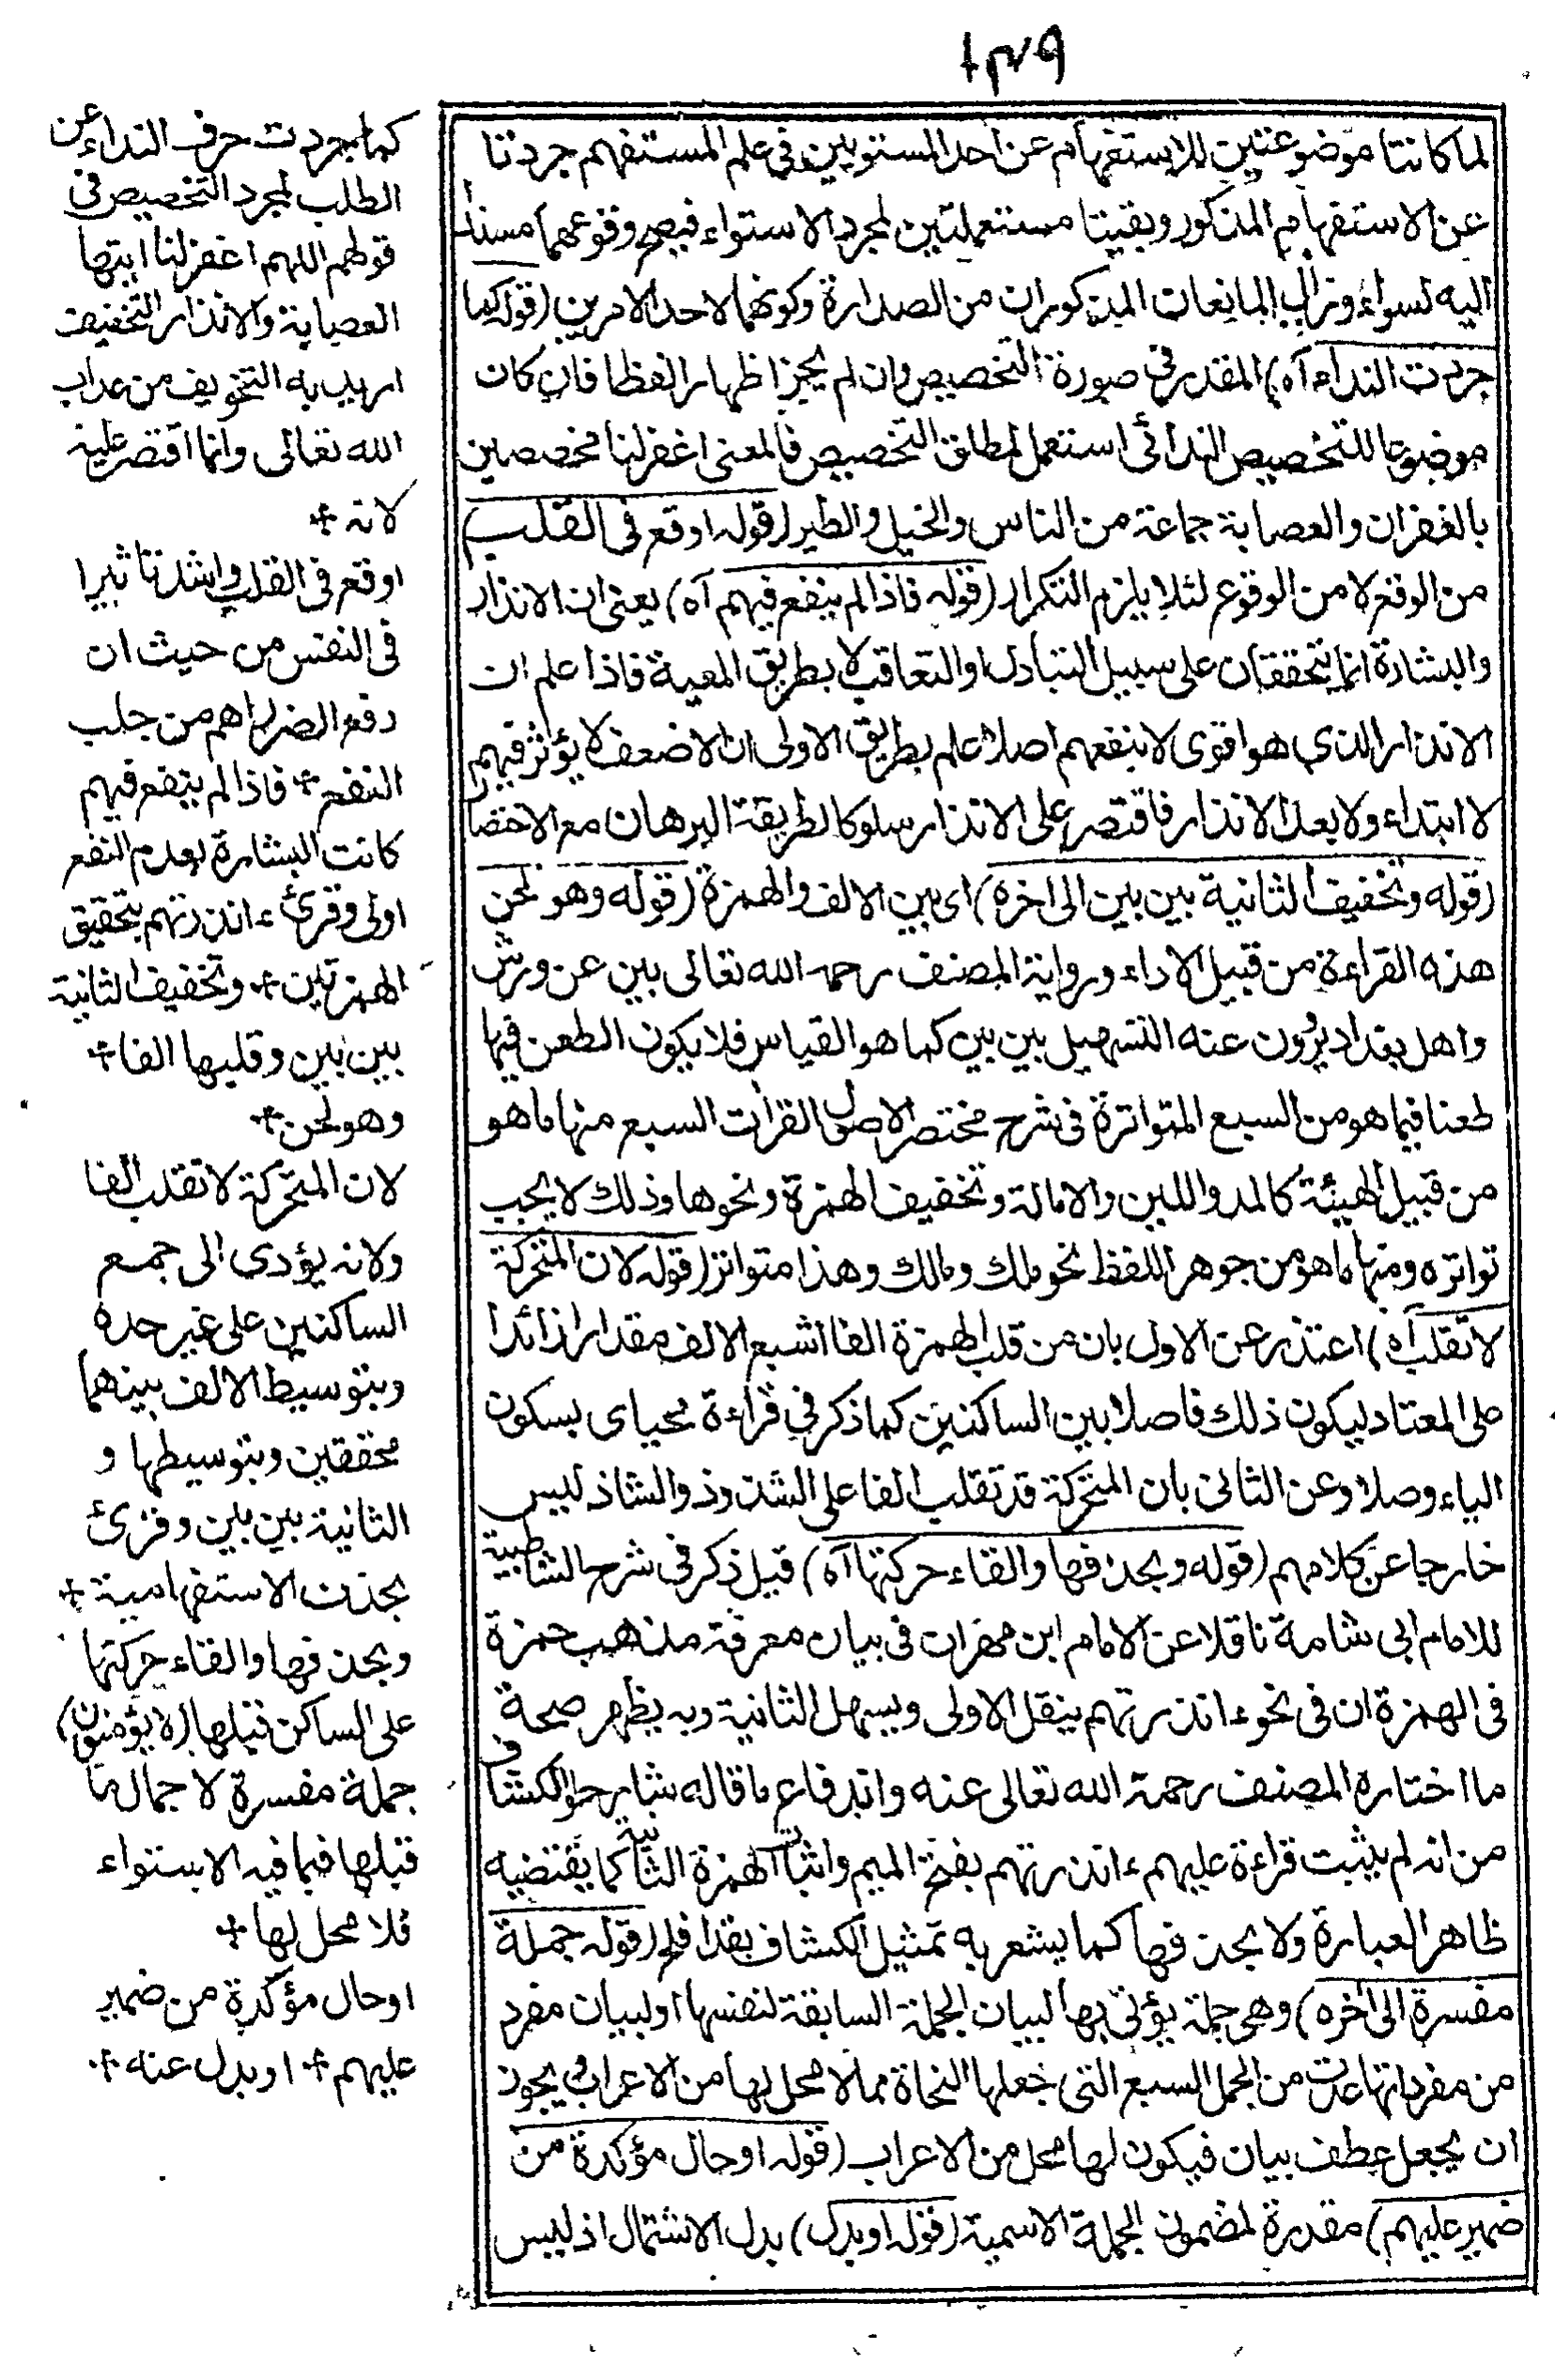 ١٣٩
لما كانتا موضوعتين للاستفهام عن احد المستويين فى علم المستفهم جردتا
عن الاستفهام المذكور وبقيتا مستعملتين لمجرد الاستواء فيصح وقوعهما مسندا
اليه لسواء وزال المانعات المذكوران من الصدارة وكونهما لاحد الامرين (قوله كما
جردت النداء آه) المقدر فى صورة التخصيص وان لم يجز اظهار لفظا فان كان
موضوعا للتخصيص الندائى استعمل لمطلق التخصيص فالمعنى اغفر لنا مخصصين
بالغفران والعصابة جماعة من الناس والخيل والطير (قوله اوقع فى القلب)
من الوقع لا من الوقوع لئلا يلزم التكرار (قوله فاذا لم ينفع فيهم آه) يعنى ان الانذار
والبشارة انما يتحققان على سبيل التبادل او التعاقب لا بطريق المعية فاذا علم ان
الانذار الذى هو اقوى لا ينفعهم اصلا علم بطريق الاولى ان الاضعف لا يؤثر فيهم
لا ابتداء ولا بعد الانذار فاقتصر على الانذار سلوكا لطريقة البرهان مع الاختصار
(قوله وتخفيف الثانية بين بين الى اخره) اى بين الالف والهمزة (قوله وهو لحن
هذه القراءة من قبيل الاداء ورواية المصنف رحمه الله تعالى بين عن ورش
واهل بغداد يرون عنه التسهيل بين بين كما هو القياس فلا يكون الطعن فيها
طعنا فيما هو من السبع المتواترة فى شرح مختصر الاصول القرات السبع منها ما هو
من قبيل الهيئة كالمد واللين والامالة وتخفيف الهمزة ونحوها وذلك لا يجب
تواتره ومنها ما هو من جوهر اللفظ نحو ملك ومالك وهذا متواتر (قوله لان المتحركة
لا تقلب آه) اعتذر عن الاول بان من قلب الهمزة الفا اشبع الالف مقدارا زائدا
على المعتاد ليكون ذلك فاصلا بين الساكنين كما ذكر فى قراءة محياى بسكون
الياء وصلا وعن الثانى بان المتحركة قد تقلب الفا على الشذوذ والشاذ ليس
خارجا عن كلامهم (قوله وبحذفها والقاء حركتها آه) قيل ذكر فى شرح الشاطبية
للامام ابى شامة ناقلا عن الامام ابن مهران فى بيان معرفة مذهب حمزة
فى الهمزة ان فى نحو ءانذرتهم ينقل الاولى ويسهل الثانية وبه يظهر صحة
ما اختاره المصنف رحمة الله تعالى عنه واندفاع ما قاله شارحوا الكشاف
من انه لم يثبت قراءة عليهم ءانذرتهم بفتح الميم واثبات الهمزة الثانية كما يقتضيه
ظاهر العبارة ولا بحذفها كما يشعر به تمثيل الكشاف بقد افلح (قوله جملة
مفسرة الى اخره) وهى جملة يؤتى بها لبيان الجملة السابقة لنفسها او لبيان مفرد
من مفرداتها عدت من الجمل السبع التى جعلها النحاة مما لا محل لها من الاعراب ويجوز
ان يجعل عطف بيان فيكون لها محل من الاعراب (قوله او حال مؤكدة من
ضمير عليهم) مقدرة لمضمون الجملة الاسمية (قوله او بدل) بدل الاشتمال اذ ليس
كما جردت حرف النداء عن
الطلب لمجرد التخصيص فى
قولهم اللهم اغفر لنا ايتها
العصابة والانذار التخفيف
اريد به التخويف من عذاب
الله تعالى وانما اقتصر عليه
لانه +
اوقع فى القلب واشد تاثيرا
فى النفس من حيث ان
دفع الضرر اهم من جلب
النفع + فاذا لم ينفع فيهم
كانت البشارة بعدم النفع
اولى وقرئ ءانذرتهم بتحقيق
الهمزتين + وتخفيف الثانية
بين بين وقلبها الفا +
وهو لحن +
لان المتحركة لا تقلب الفا
ولانه يؤدى الى جمع
الساكنين على غير حده
وبتوسيط الالف بينهما
محققين وبتوسيطها و
الثانية بين بين وقرئ
بحذف الاستفهامية +
وبحذفها والقاء حركتها
على الساكن قبلها (لا يؤمنون)
جملة مفسرة لاجمال ما
قبلها فيما فيه الاستواء
فلا محل لها +
او حال مؤكدة من ضمير
عليهم + او بدل عنه +